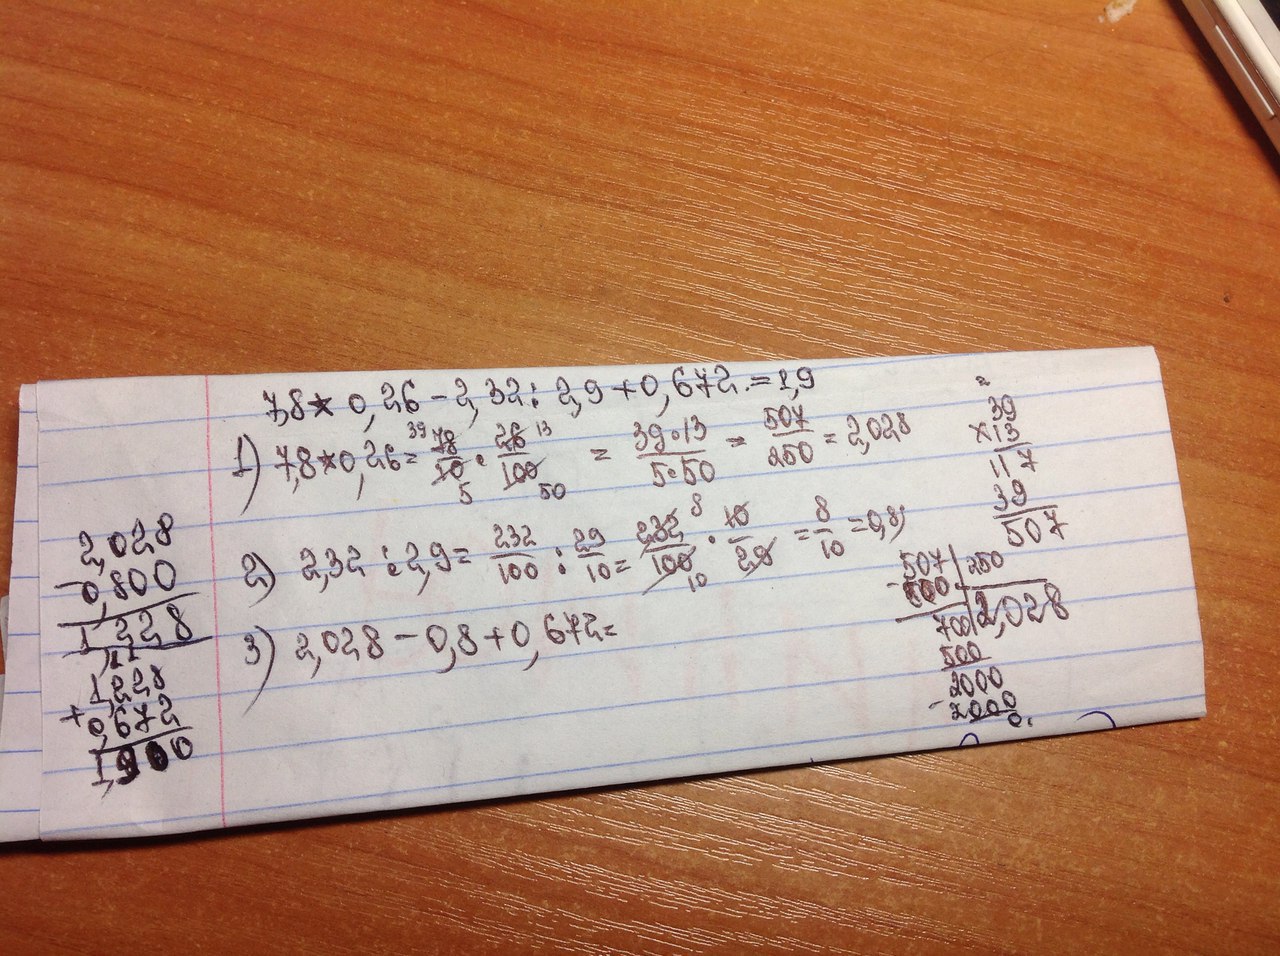 7,8 * 0,26 - 2,32 : 2,9 + 0,672 = 1,9
1) 7,8 * 0,26 = 39 78/10 5 · 26 13/100 50 = 39·13/5·50 = 507/250 = 2,028
2) 2,32 : 2,9 = 232/100 : 29/10 = 232 8/100 10 · 10/29 = 8/10 = 0,8)
3) 2,028 - 0,8 + 0,672 =
2,028
- 0,800
1,228
1,228
+ 0,672
1,900
2
39
×13
117
39
507
507 | 250
- 500 2,028
700
500
2000
- 2000
0.